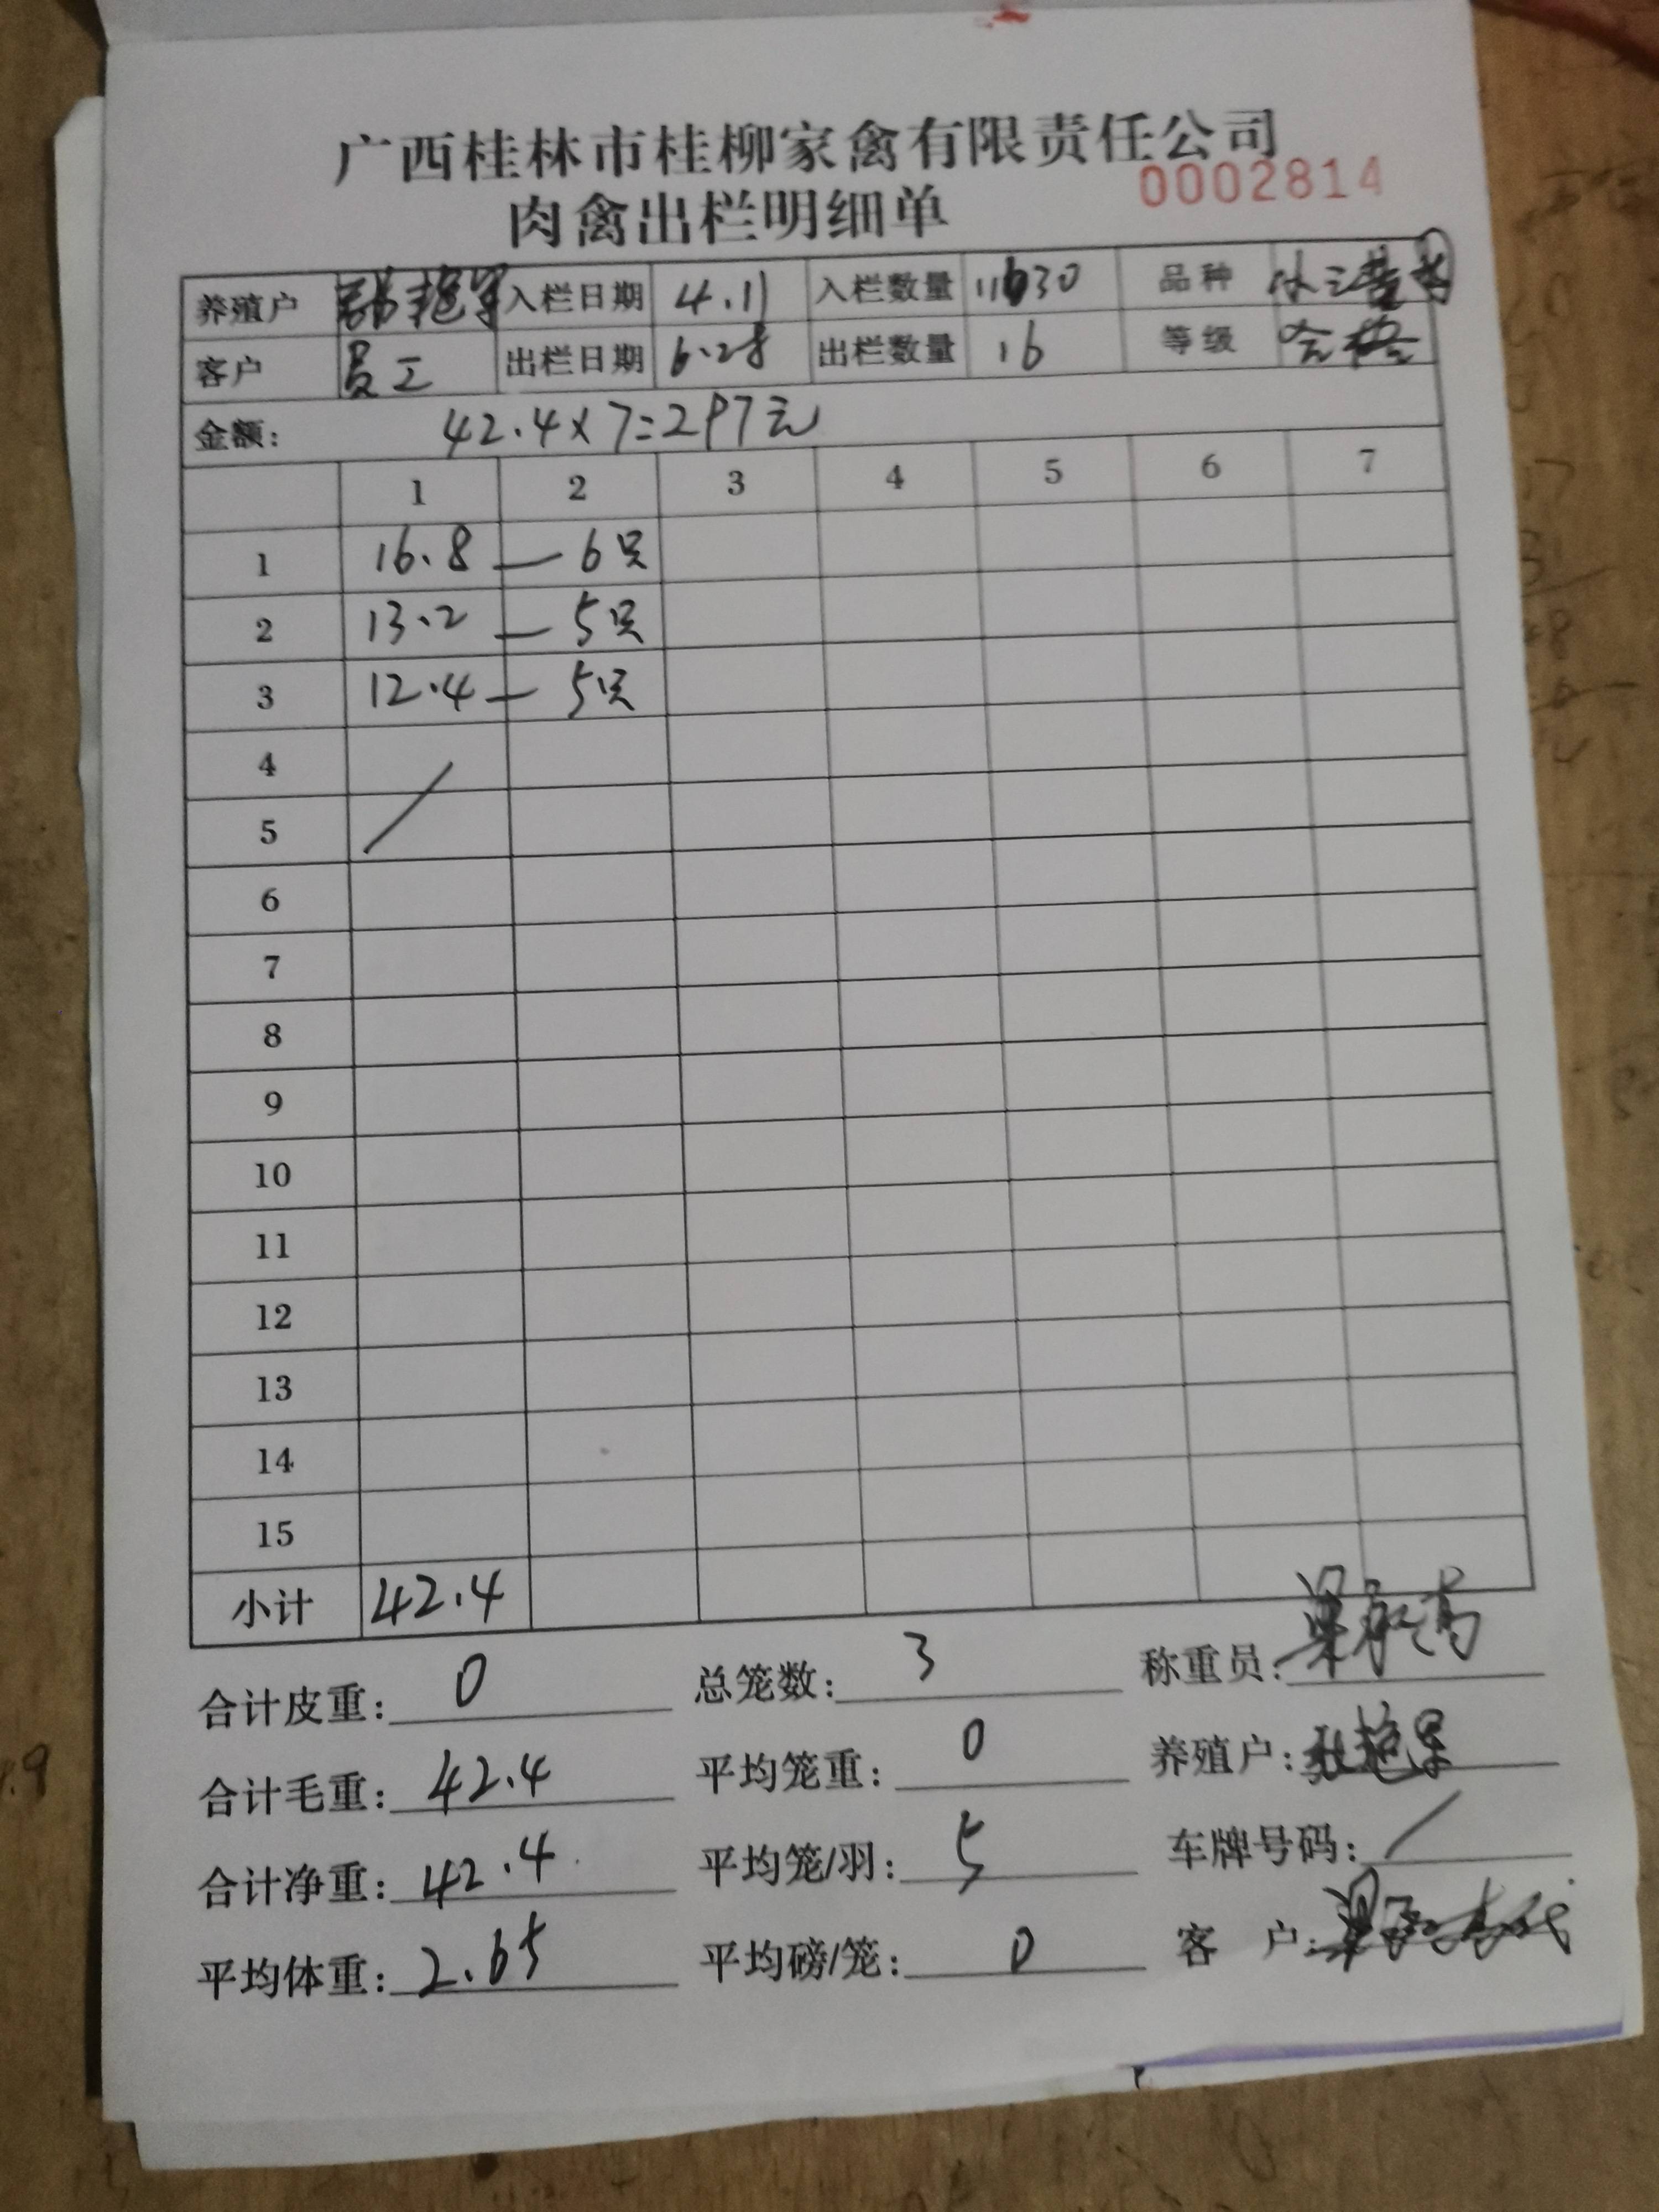 广西桂林市桂柳家禽有限责任公司
0002814
肉禽出栏明细单
养殖户 入栏日期 4.11 入栏数量 11630 品种
客户 员工 出栏日期 6.28 出栏数量 16 等级 合格
金额: 42.4×7=297元
1 2 3 4 5 6 7
1 16.8 — 6只
2 13.2 — 5只
3 12.4 — 5只
4
5
6
7
8
9
10
11
12
13
14
15
小计 42.4
合计皮重: 0 总笼数: 3 称重员:
合计毛重: 42.4 平均笼重: 0 养殖户:
合计净重: 42.4 平均笼/羽: 5 车牌号码: /
平均体重: 2.65 平均磅/笼: 0 客 户: